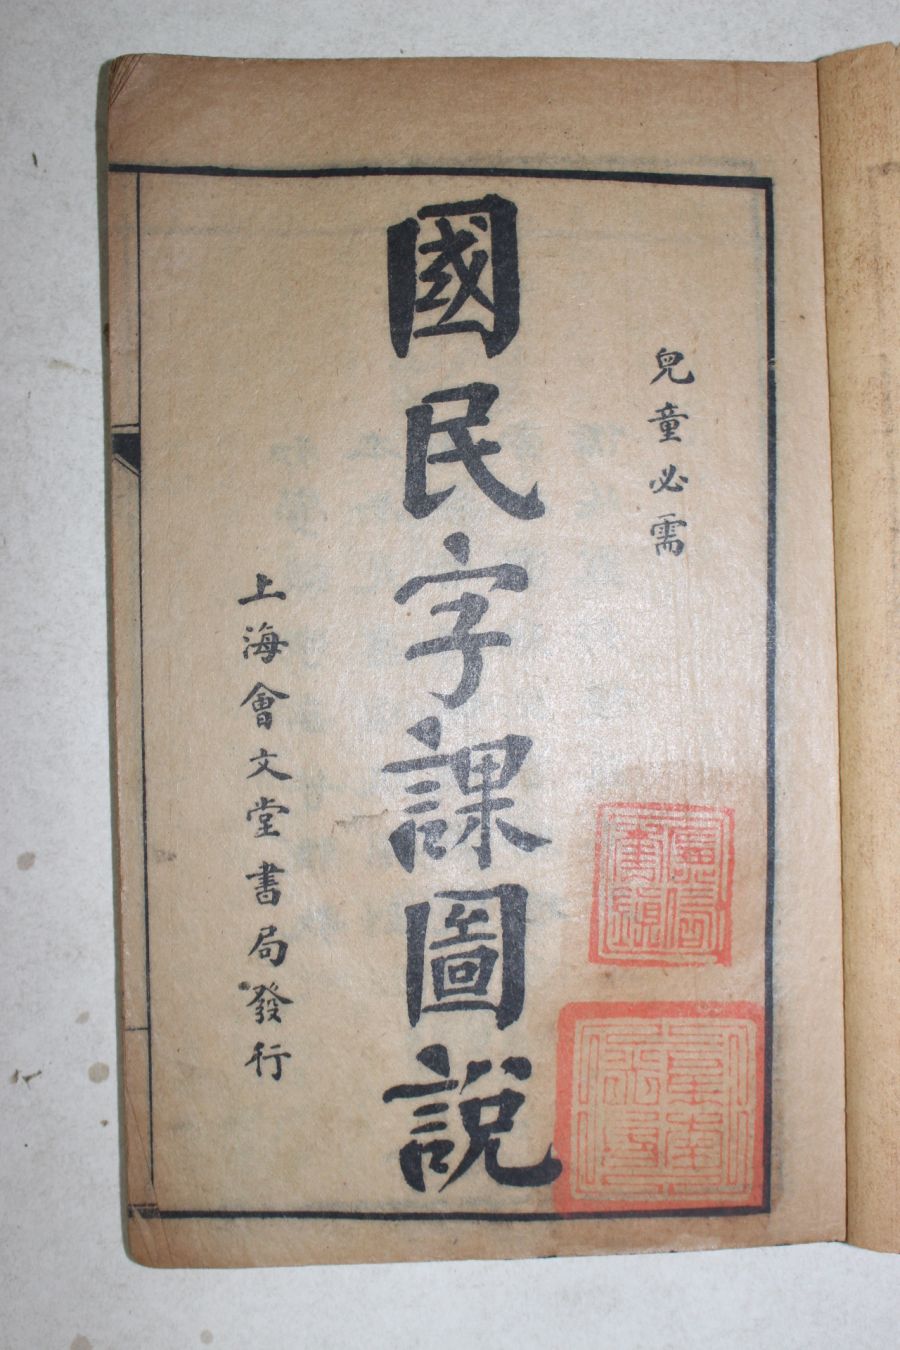 兒童必需
國民字課圖說
上海會文堂書局發行